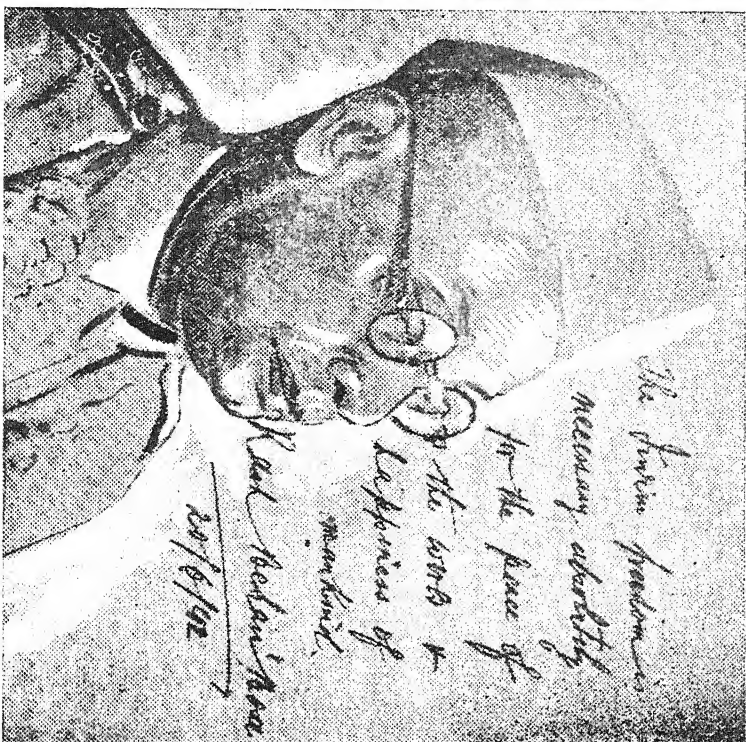 The Indian freedom is
necessary absolutely
for the peace of
the world &
happiness of
mankind.
Rash Behari Bose
20/6/42